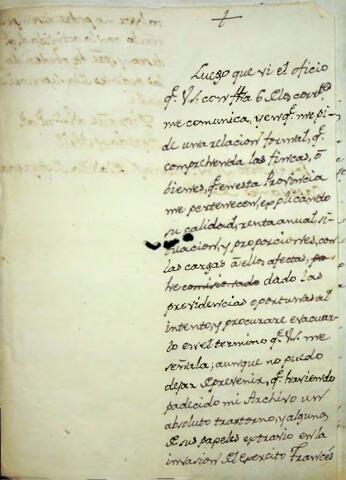 Luego que vi el oficio
q.e V.S. con fha 6 del corr.te
me comunica, y en q.e me pi-
de una relacion formal, q.e
comprehenda las fincas, ó
bienes, q.e en esta Provincia
me pertenecen, explicando
su calidad, renta anual, si-
tuacion, y proporciones, con
las cargas á ellos afectas,
he comisionado dado las
providencias oportunas al
intento, y procurare evacuar-
lo en el termino q.e V.S. me
señala; aunque no puedo
dejar de prevenir, q.e haviendo
padecido mi Archivo un
absoluto trastorno, y algunos
de sus papeles extravio en la
invasion del exercito Francés